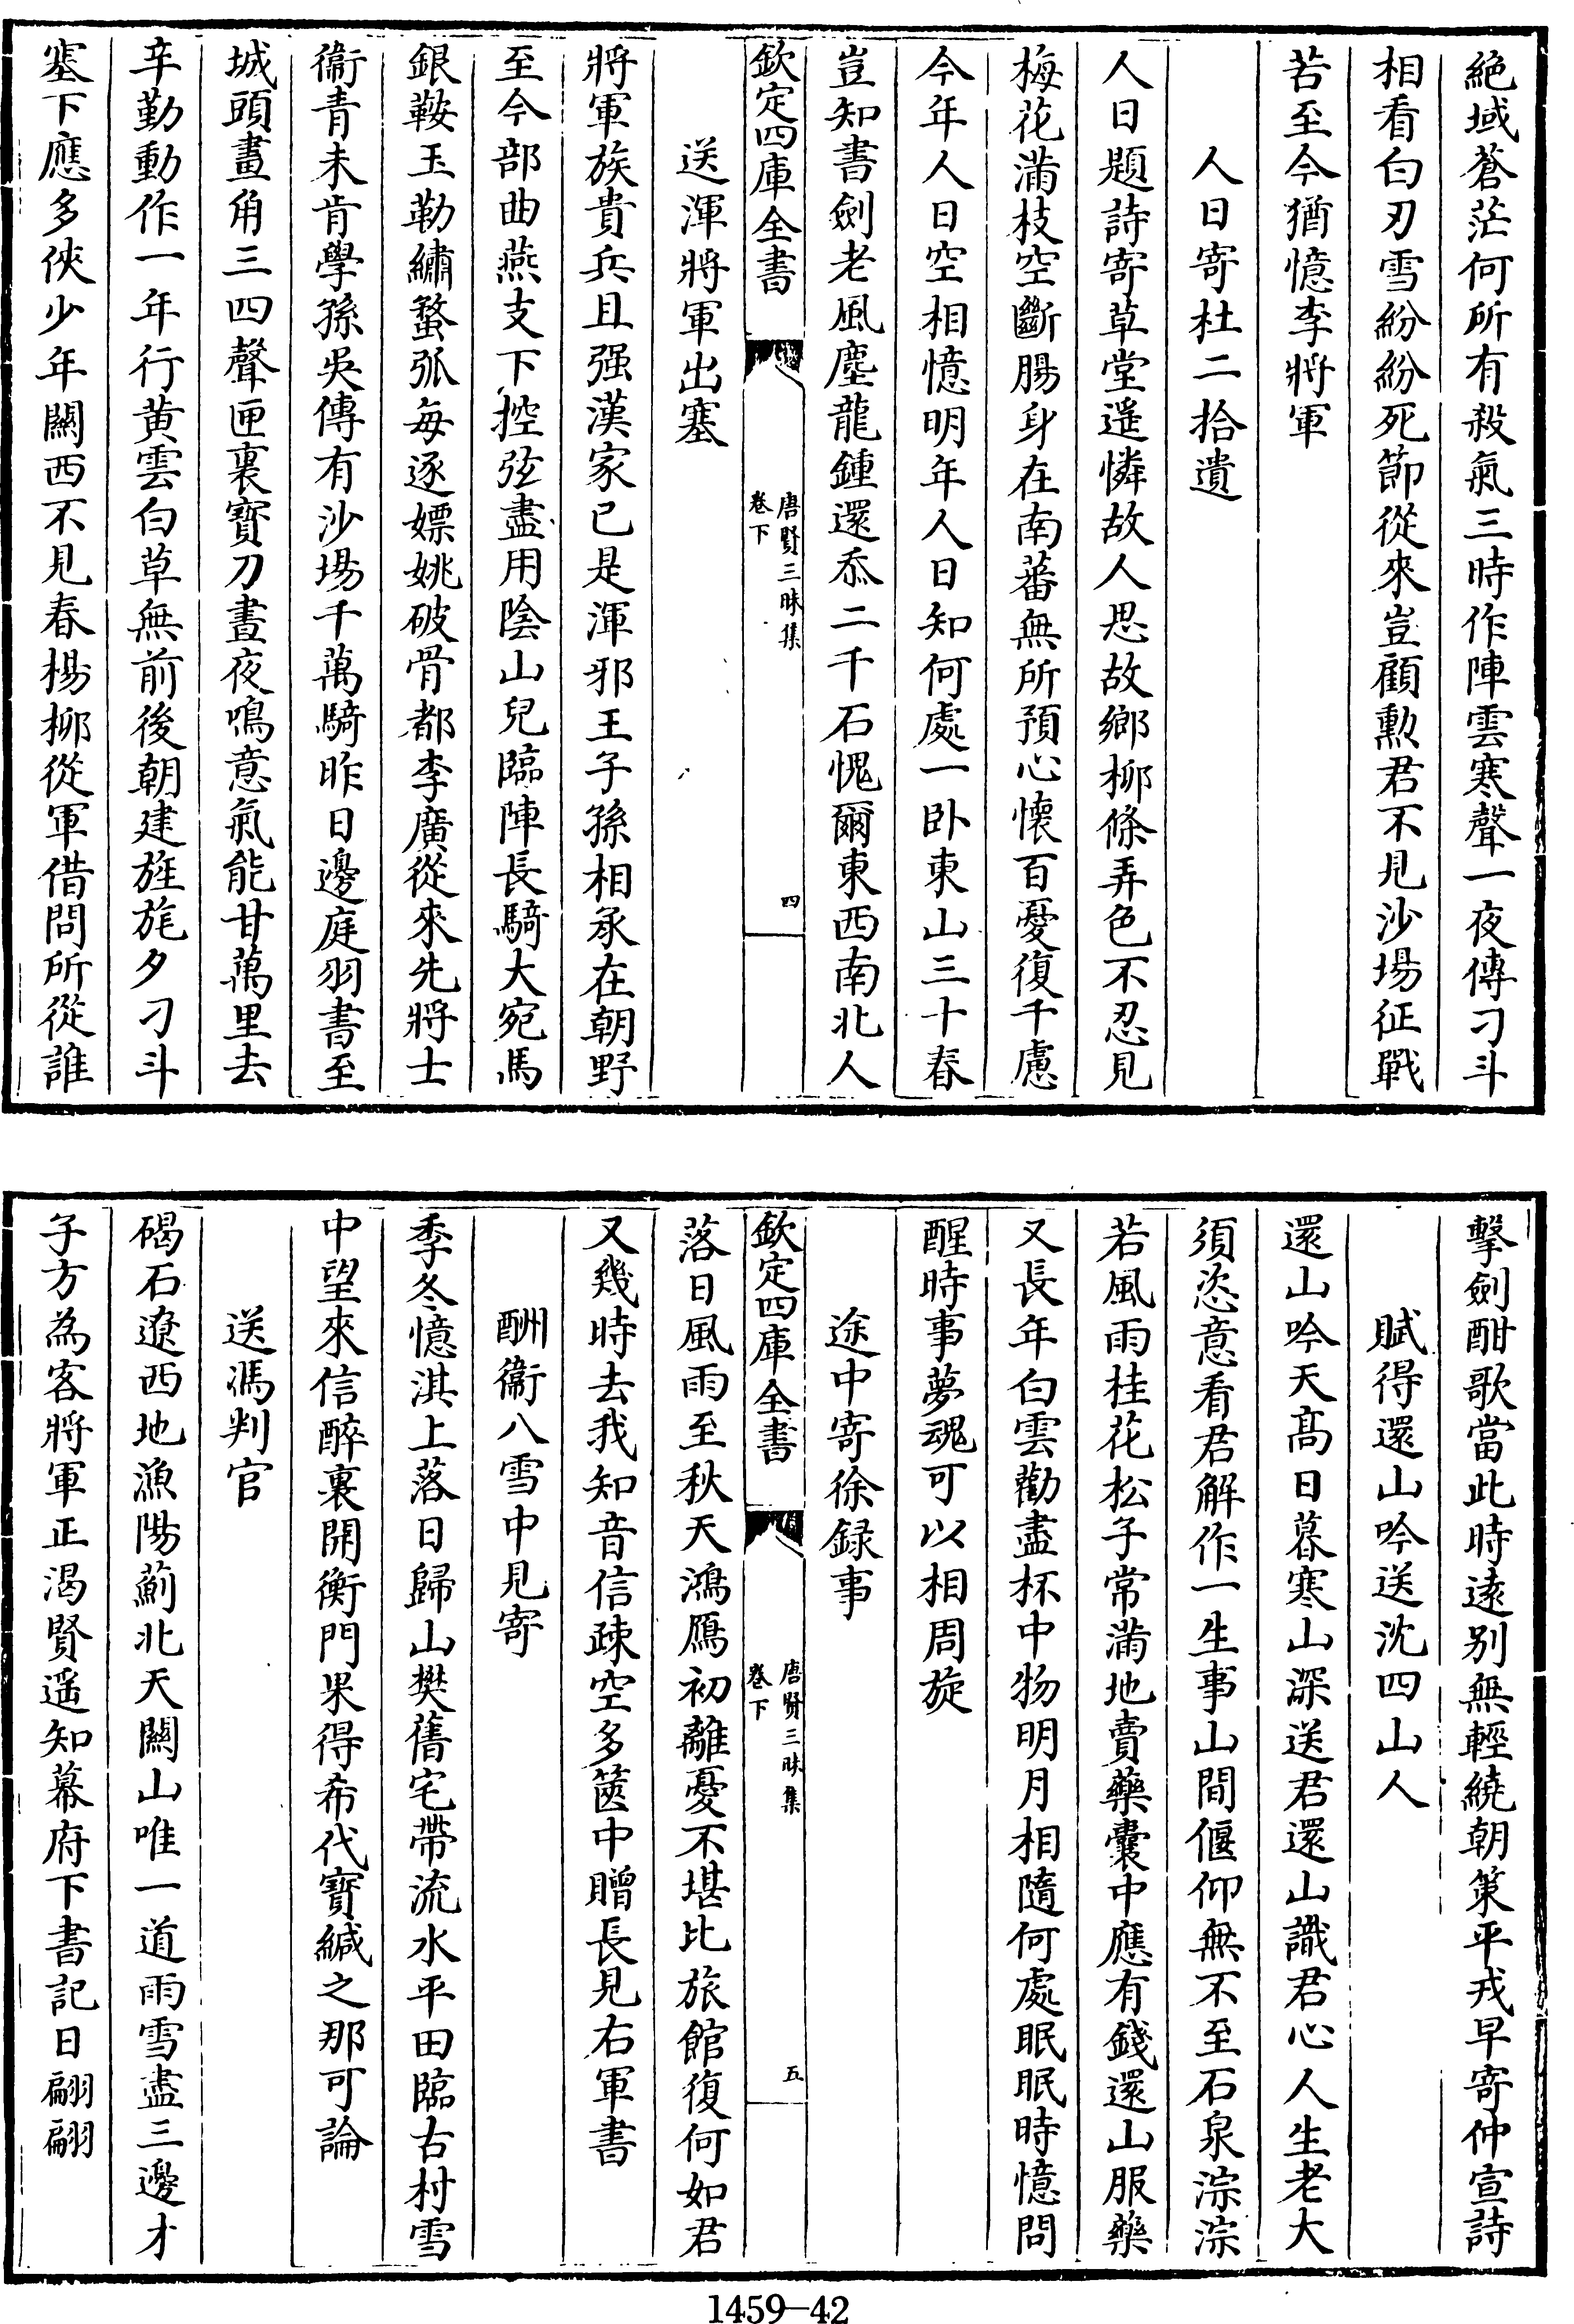 絶域蒼茫何所有殺氣三時作陣雲寒聲一夜傳刁斗
相看白刃雪紛紛死節從來豈顧勲君不見沙場征戰
苦至今猶憶李將軍
人日寄杜二拾遺
人日題詩寄草堂遥憐故人思故鄉柳條弄色不忍見
梅花滿枝空斷腸身在南蕃無所預心懷百憂復千慮
今年人日空相憶明年人日知何處一卧東山三十春
豈知書劍老風塵龍鍾還忝二千石愧爾東西南北人
欽定四庫全書
唐賢三昧集
卷下
四
送渾將軍出塞
將軍族貴兵且强漢家已是渾邪王子孫相承在朝野
至今部曲燕支下控弦盡用陰山兒臨陣長騎大宛馬
銀鞍玉勒繡蝥弧每逐嫖姚破骨都李廣從來先將士
衞青未肯學孫吳傳有沙場千萬騎昨日邊庭羽書至
城頭畫角三四聲匣裏寶刀晝夜鳴意氣能甘萬里去
辛勤動作一年行黄雲白草無前後朝建旌旄夕刁斗
塞下應多俠少年關西不見春楊柳從軍借問所從誰
擊劍酣歌當此時遠别無輕繞朝策平戎早寄仲宣詩
賦得還山吟送沈四山人
還山吟天髙日暮寒山深送君還山識君心人生老大
須恣意看君解作一生事山間偃仰無不至石泉淙淙
若風雨桂花松子常滿地賣藥囊中應有錢還山服藥
又長年白雲勸盡杯中物明月相隨何處眠眠時憶問
醒時事夢魂可以相周旋
途中寄徐録事
欽定四庫全書
唐賢三昧集
卷下
五
落日風雨至秋天鴻鴈初離憂不堪比旅館復何如君
又幾時去我知音信疎空多篋中贈長見右軍書
酬衞八雪中見寄
季冬憶淇上落日歸山樊舊宅帶流水平田臨古村雪
中望來信醉裏開衡門果得希代寶緘之那可論
送馮判官
碣石遼西地漁陽薊北天關山唯一道雨雪盡三邊才
子方為客將軍正渴賢遥知幕府下書記日翩翩
1459—42